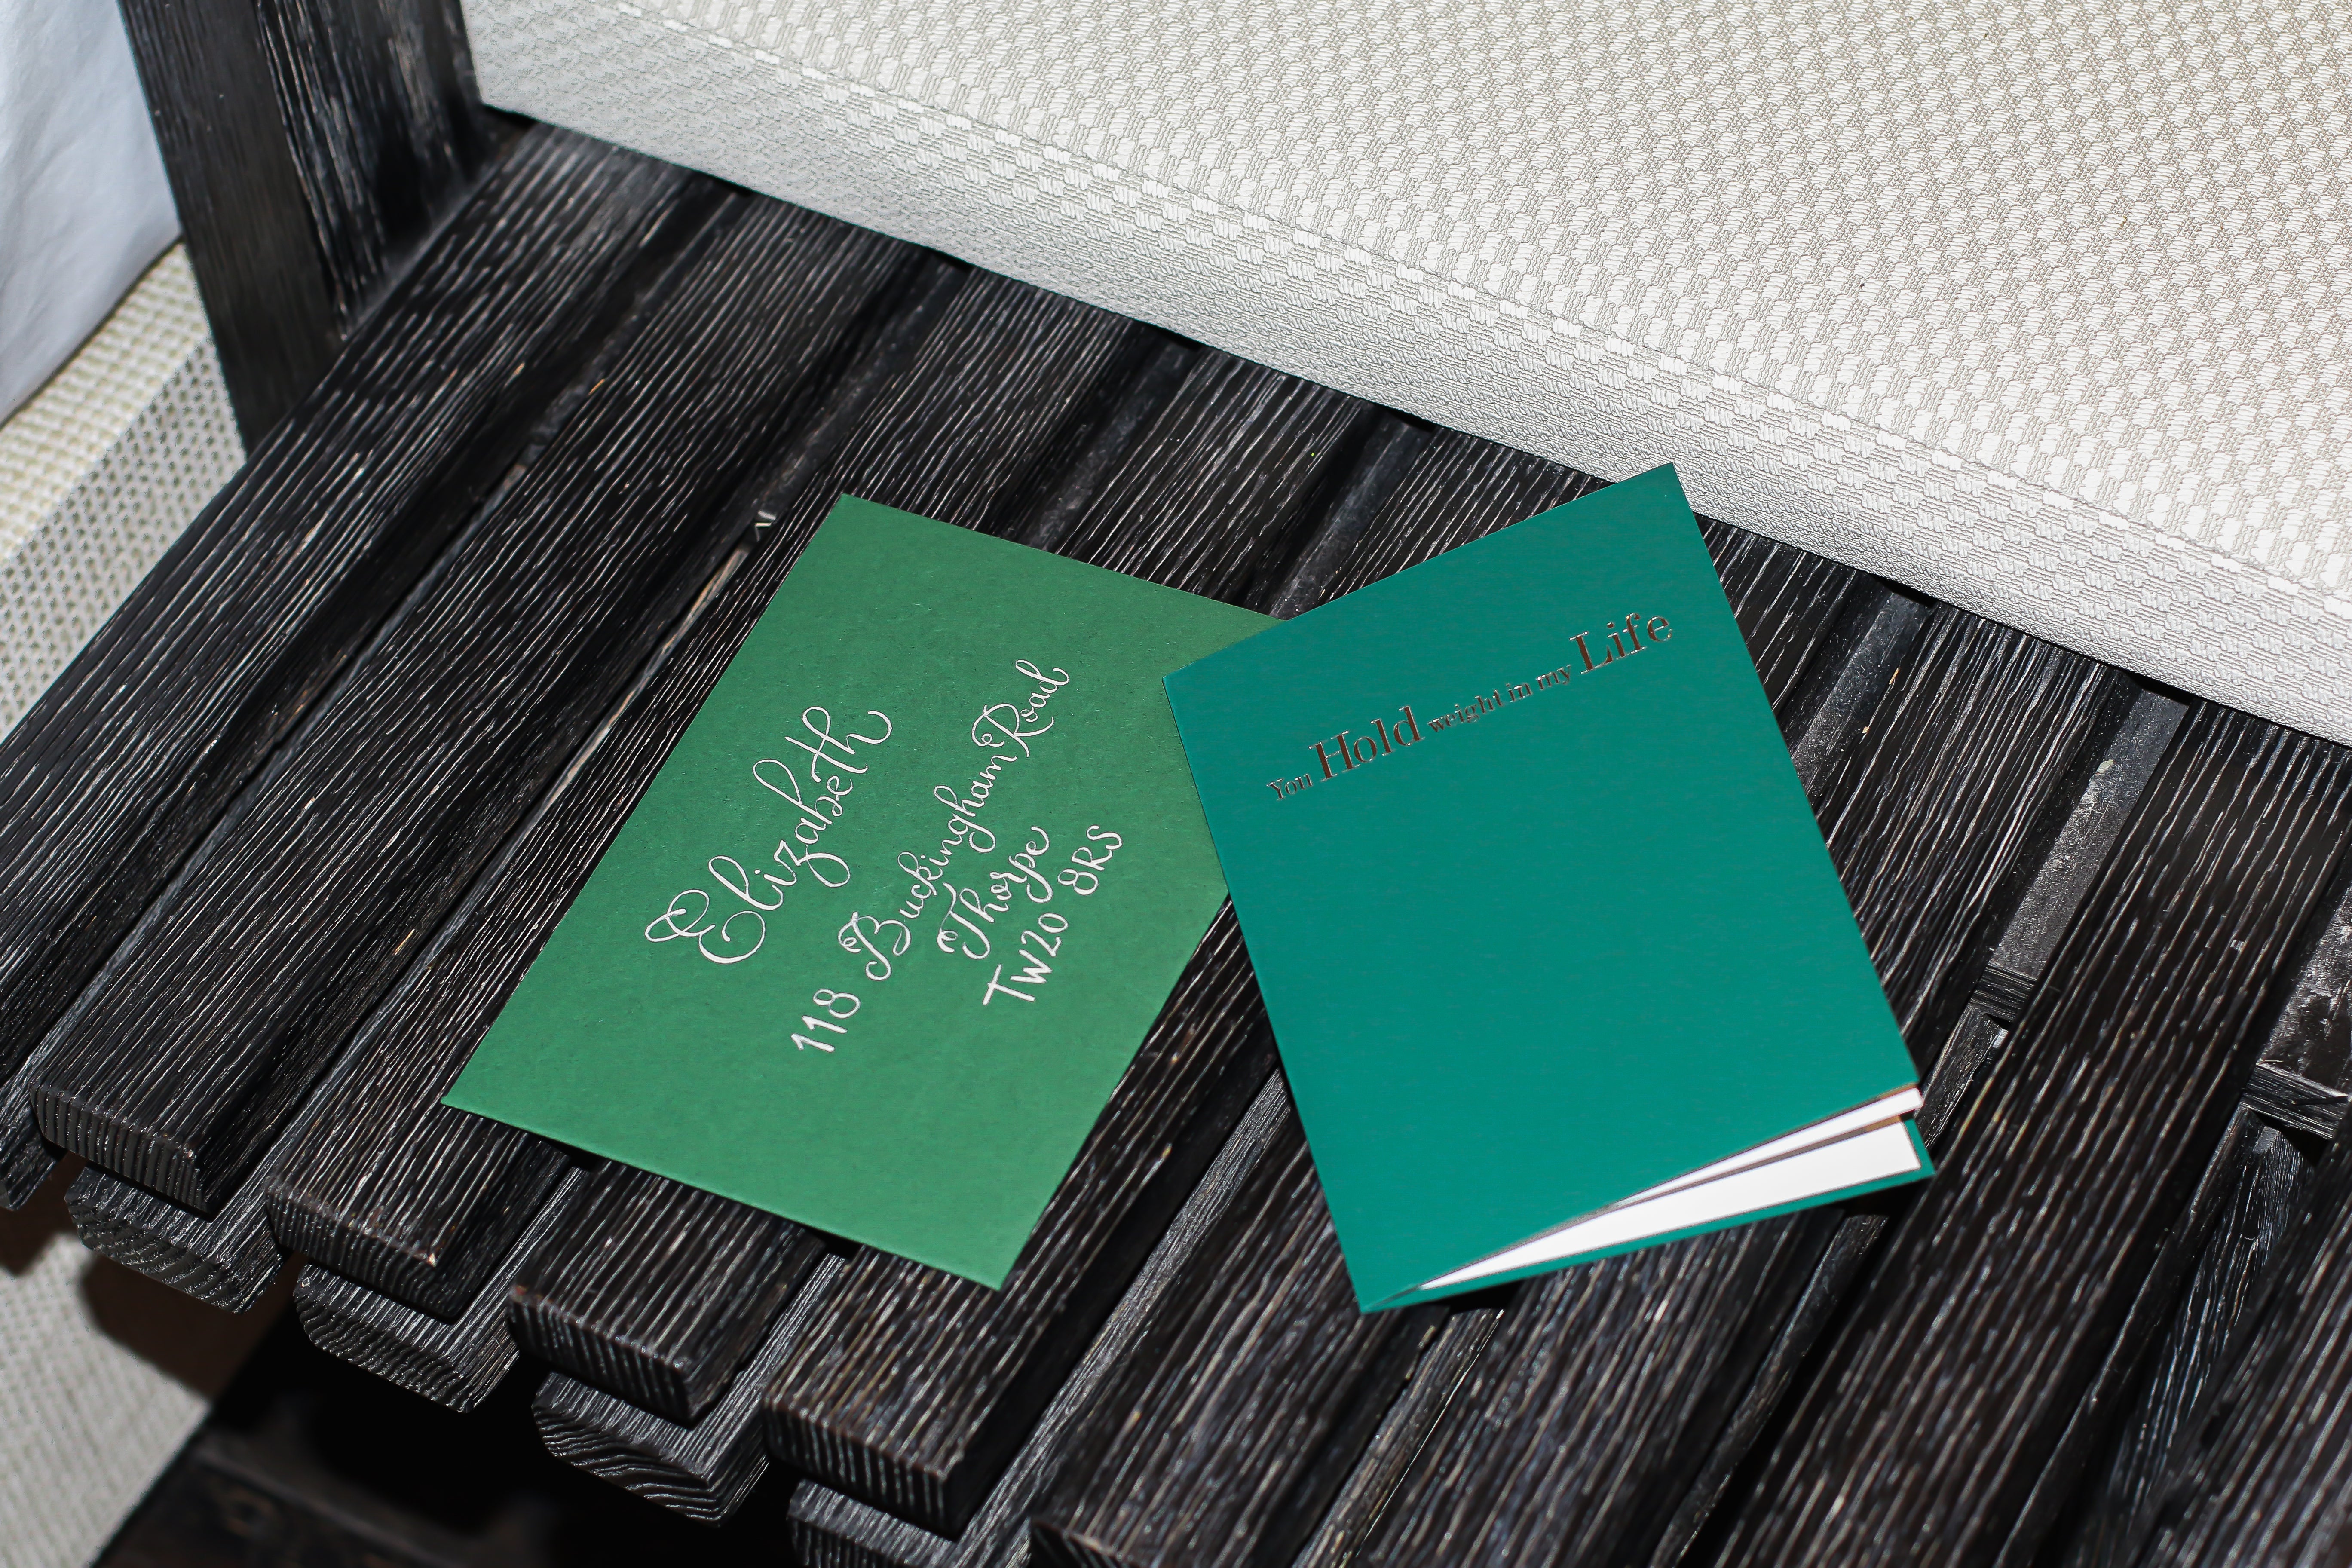 Elizabeth
118 Buckingham Road
Thorpe
TW20 8RS
You Hold weight in my Life